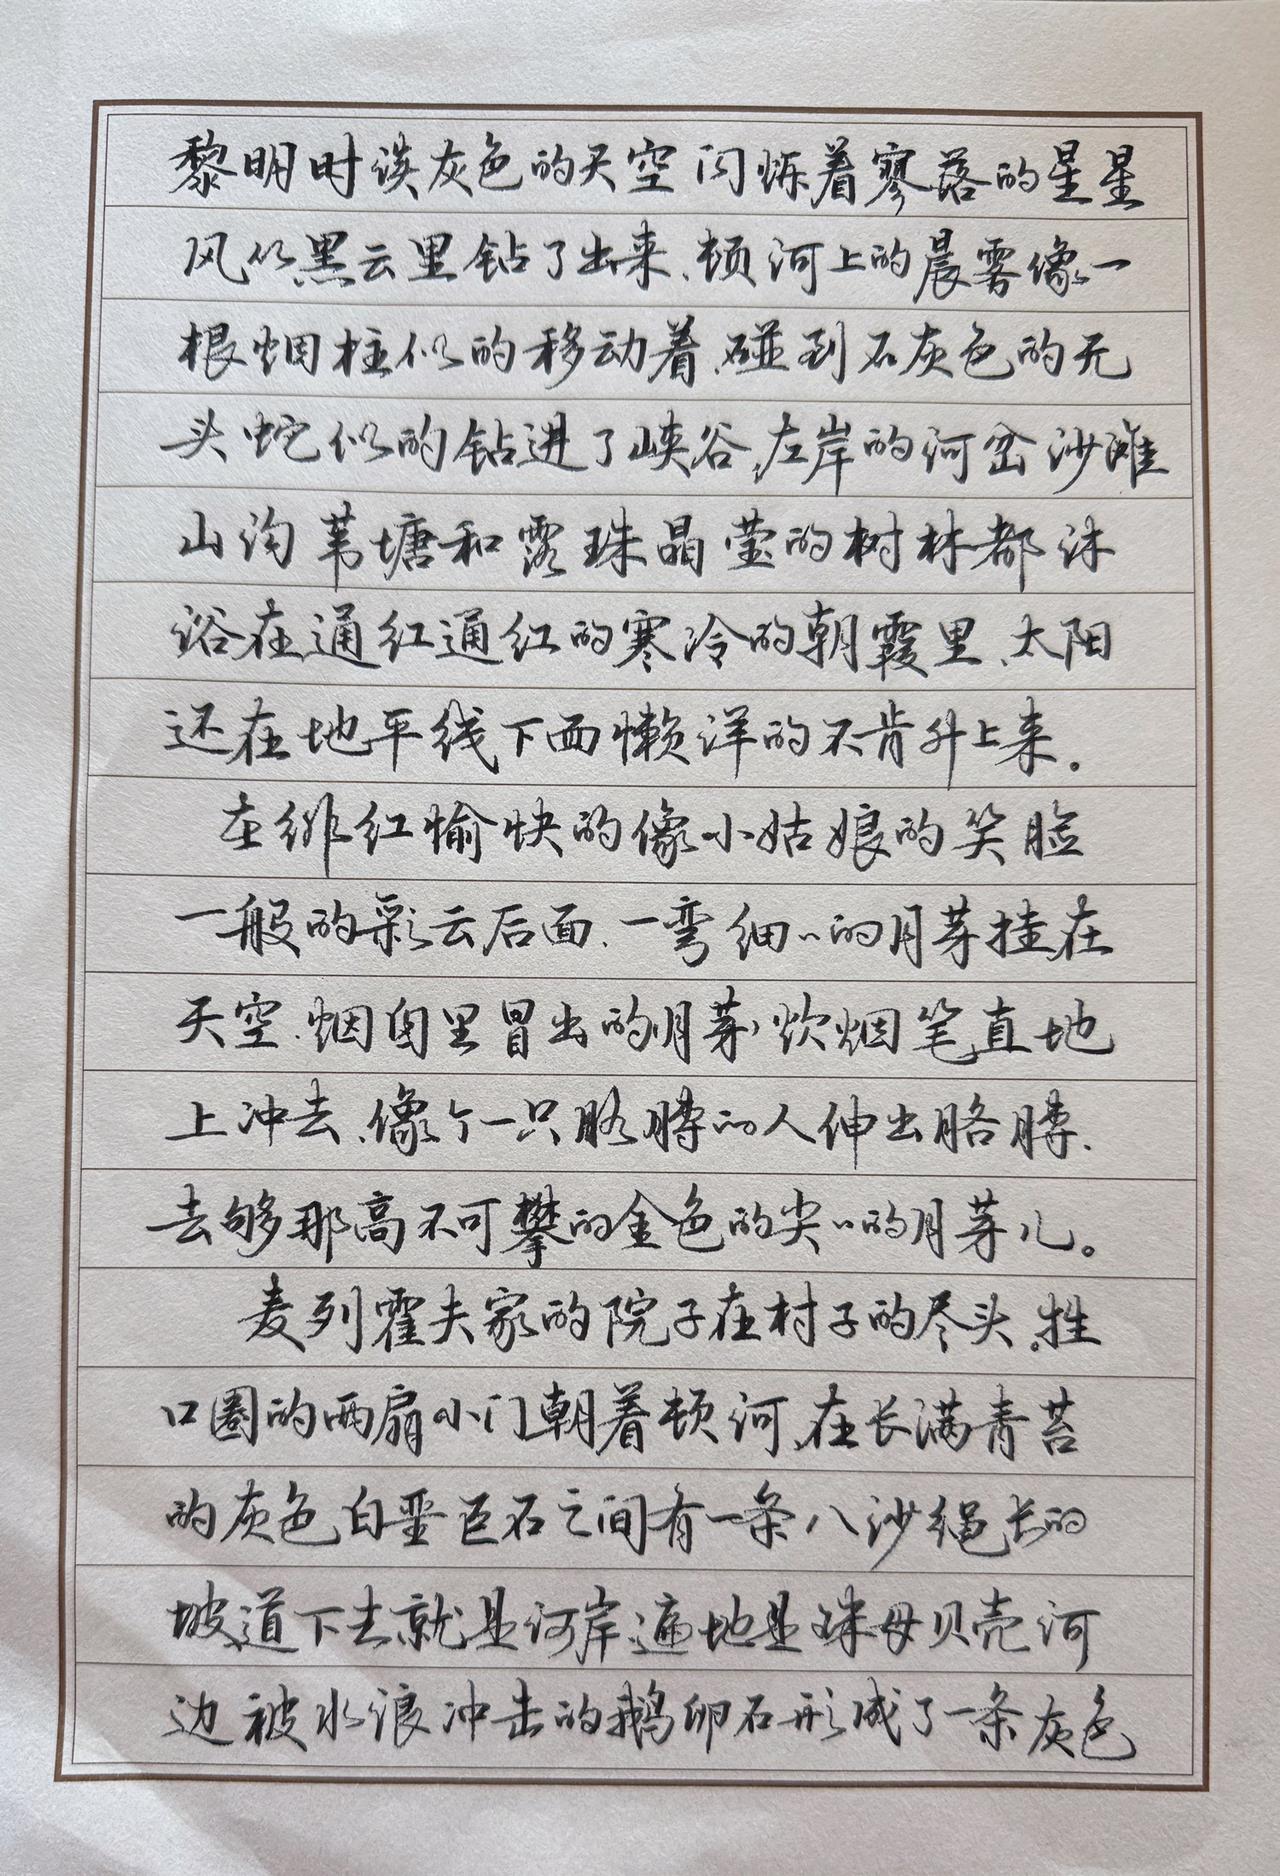 黎明时淡灰色的天空闪烁着寥落的星星
风从黑云里钻了出来、顿河上的晨雾像一
根烟柱似的移动着、碰到石灰色的无
头蛇似的钻进了峡谷、左岸的河岔沙滩
山沟苇塘和露珠晶莹的树林都沐
浴在通红通红的寒冷的朝霞里、太阳
还在地平线下面懒洋的不肯升上来。
在绯红愉快的像小姑娘的笑脸
一般的彩云后面、一弯细々的月芽挂在
天空、烟囱里冒出的月芽、炊烟笔直地
上冲去、像个一只胳膊的人伸出胳膊、
去够那高不可攀的金色的尖々的月芽儿。
麦列霍夫家的院子在村子的尽头。牲
口圈的两扇小门朝着顿河、在长满青苔
的灰色白垩巨石之间有一条八沙绳长的
坡道下去就是河岸、遍地是珠母贝壳河
边被水浪冲击的鹅卵石形成了一条灰色